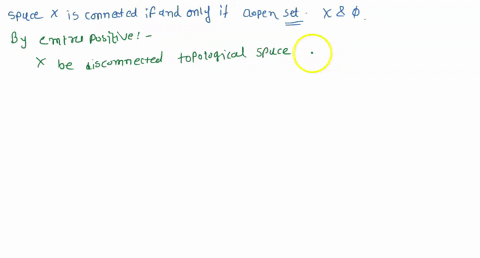 space X is connected if and only if clopen set. X & ϕ.
By contrapositive:-
X be disconnected topological space